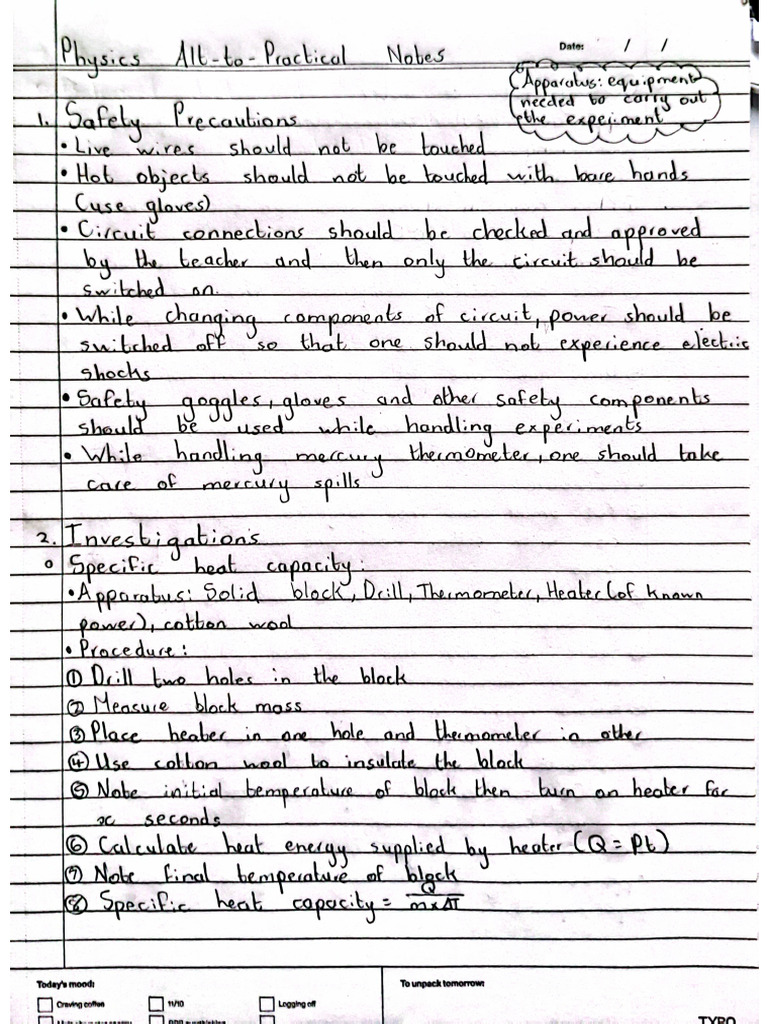 Physics Alt-to-Practical Notes
Date: / /
Apparatus: equipment
needed to carry out
the expeiment
1. Safety Precautions
• Live wires should not be touched
• Hot objects should not be touched with bare hands
(use gloves)
• Circuit connections should be checked and approved
by the teacher and then only the circuit should be
switched on.
• While changing components of circuit, power should be
switched off so that one should not experience electric
shocks
• Safety goggles, gloves and other safety components
should be used while handling experiments
• While handling mercury thermometer, one should take
care of mercury spills
2. Investigations
o Specific heat capacity:
• Apparatus: Solid block, Drill, Thermometer, Heater (of known
power), cotton wool
• Procedure:
① Drill two holes in the block
② Measure block mass
③ Place heater in one hole and thermometer in other
④ Use cotton wool to insulate the block
⑤ Note initial temperature of block then turn on heater for
x seconds
⑥ Calculate heat energy supplied by heater (Q = Pt)
⑦ Note final temperature of block
⑧ Specific heat capacity = Q / m×ΔT
Today's mood:
To unpack tomorrow:
Craving coffee
11/10
Logging off
TYPO